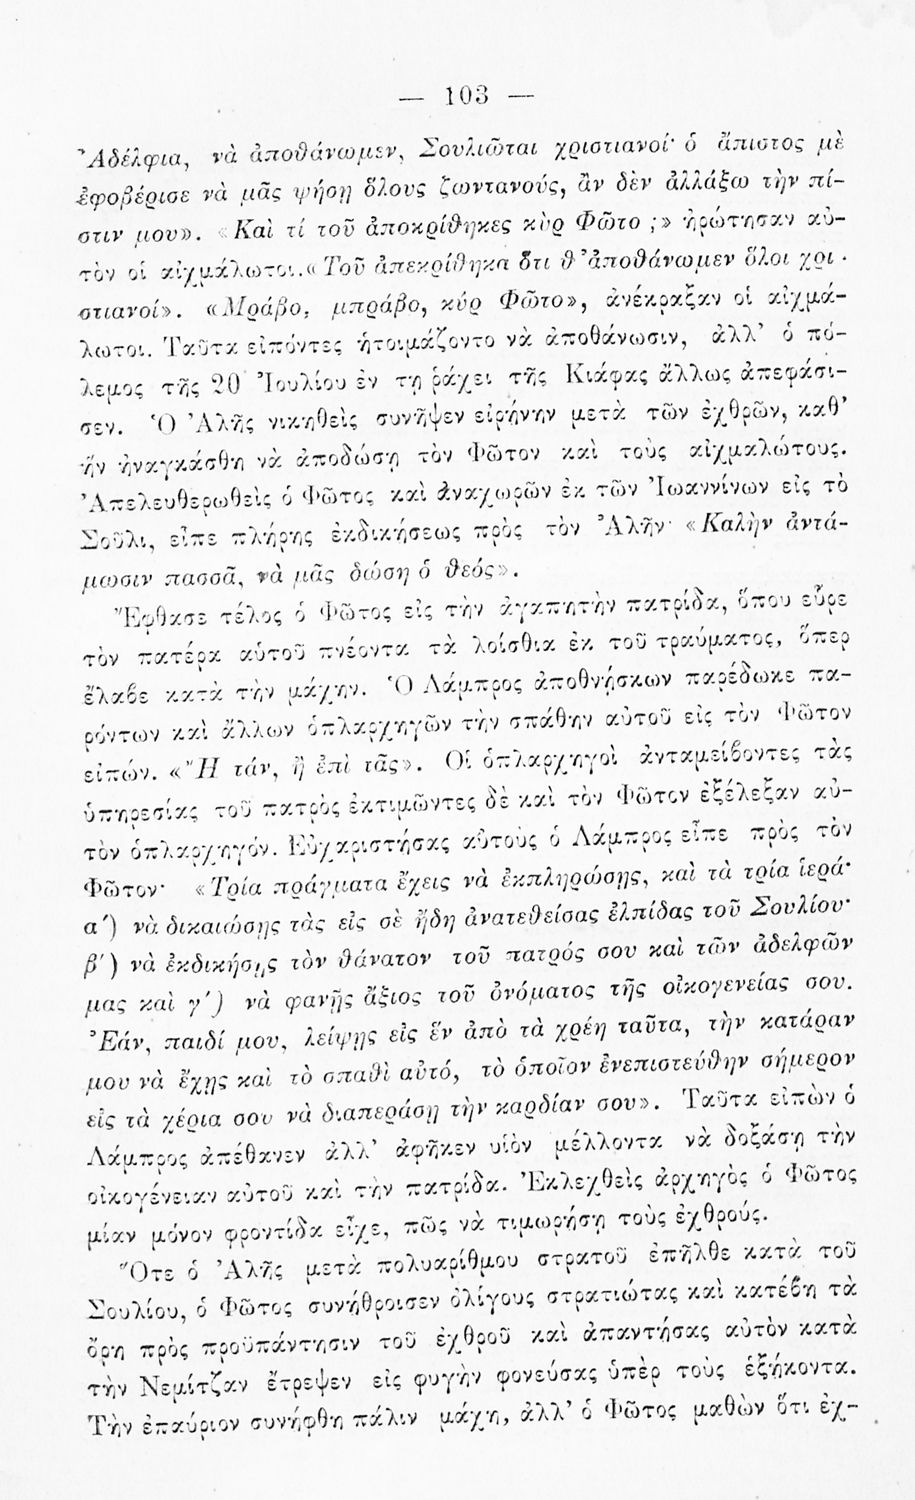 — 103 —
Ἀδέλφια, νὰ ἀποθάνωμεν, Σουλιῶται χριστιανοί· ὁ ἄπιστος μὲ
ἐφοβέρισε νὰ μᾶς ψήσῃ ὅλους ζωντανούς, ἂν δὲν ἀλλάξω τὴν πί-
στιν μου». «Καὶ τί τοῦ ἀποκρίθηκες κὺρ Φῶτο ;» ἠρώτησαν αὐ-
τὸν οἱ αἰχμάλωτοι. «Τοῦ ἀπεκρίθηκα ὅτι θ’ ἀποθάνωμεν ὅλοι χρι-
στιανοί». «Μράβο, μπράβο, κύρ Φῶτο», ἀνέκραξαν οἱ αἰχμά-
λωτοι. Ταῦτα εἰπόντες ἡτοιμάζοντο νὰ ἀποθάνωσιν, ἀλλ’ ὁ πό-
λεμος τῆς 20 Ἰουλίου ἐν τῃ ῥάχει τῆς Κιάφας ἄλλως ἀπεφάσι-
σεν. Ὁ Ἀλῆς νικηθεὶς συνῆψεν εἰρήνην μετὰ τῶν ἐχθρῶν, καθ’
ἥν ἠναγκάσθη νὰ ἀποδώσῃ τὸν Φῶτον καὶ τοὺς αἰχμαλώτους.
Ἀπελευθερωθεὶς ὁ Φῶτος καὶ ἀναχωρῶν ἐκ τῶν Ἰωαννίνων εἰς τὸ
Σοῦλι, εἶπε πλήρης ἐκδικήσεως πρὸς τὸν Ἀλῆν· «Καλὴν ἀντά-
μωσιν πασσᾶ, νὰ μᾶς δώσῃ ὁ θεός».
Ἔφθασε τέλος ὁ Φῶτος εἰς τὴν ἀγαπητὴν πατρίδα, ὅπου εὗρε
τὸν πατέρα αὑτοῦ πνέοντα τὰ λοίσθια ἐκ τοῦ τραύματος, ὅπερ
ἔλαβε κατὰ τὴν μάχην. Ὁ Λάμπρος ἀποθνήσκων παρέδωκε πα-
ρόντων καὶ ἄλλων ὁπλαρχηγῶν τὴν σπάθην αὑτοῦ εἰς τὸν Φῶτον
εἰπών. «Ἢ τάν, ἢ ἐπὶ τᾶς». Οἱ ὁπλαρχηγοὶ ἀνταμείβοντες τὰς
ὑπηρεσίας τοῦ πατρὸς ἐκτιμῶντες δὲ καὶ τὸν Φῶτον ἐξέλεξαν αὐ-
τὸν ὁπλαρχηγόν. Εὐχαριστήσας αὐτοὺς ὁ Λάμπρος εἶπε πρὸς τὸν
Φῶτον· «Τρία πράγματα ἔχεις νὰ ἐκπληρώσῃς, καὶ τὰ τρία ἱερά·
α΄) νὰ δικαιώσῃς τὰς εἰς σὲ ἤδη ἀνατεθείσας ἐλπίδας τοῦ Σουλίου·
β΄) νὰ ἐκδικήσῃς τὸν θάνατον τοῦ πατρός σου καὶ τῶν ἀδελφῶν
μας καὶ γ΄) νὰ φανῇς ἄξιος τοῦ ὀνόματος τῆς οἰκογενείας σου.
Ἐάν, παιδί μου, λείψῃς εἰς ἓν ἀπὸ τὰ χρέη ταῦτα, τὴν κατάραν
μου νὰ ἔχῃς καὶ τὸ σπαθὶ αὐτό, τὸ ὁποῖον ἐνεπιστεύθην σήμερον
εἰς τὰ χέρια σου νὰ διαπεράσῃ τὴν καρδίαν σου». Ταῦτα εἰπὼν ὁ
Λάμπρος ἀπέθανεν ἀλλ’ ἀφῆκεν υἱὸν μέλλοντα νὰ δοξάσῃ τὴν
οἰκογένειαν αὐτοῦ καὶ τὴν πατρίδα. Ἐκλεχθεὶς ἀρχηγὸς ὁ Φῶτος
μίαν μόνον φροντίδα εἶχε, πῶς νὰ τιμωρήσῃ τοὺς ἐχθρούς.
Ὅτε ὁ Ἀλῆς μετὰ πολυαρίθμου στρατοῦ ἐπῆλθε κατὰ τοῦ
Σουλίου, ὁ Φῶτος συνήθροισεν ὀλίγους στρατιώτας καὶ κατέβη τὰ
ὄρη πρὸς προϋπάντησιν τοῦ ἐχθροῦ καὶ ἀπαντήσας αὐτὸν κατὰ
τὴν Νεμίτζαν ἔτρεψεν εἰς φυγὴν φονεύσας ὑπὲρ τοὺς ἑξήκοντα.
Τὴν ἐπαύριον συνήφθη πάλιν μάχη, ἀλλ’ ὁ Φῶτος μαθὼν ὅτι ἐχ-